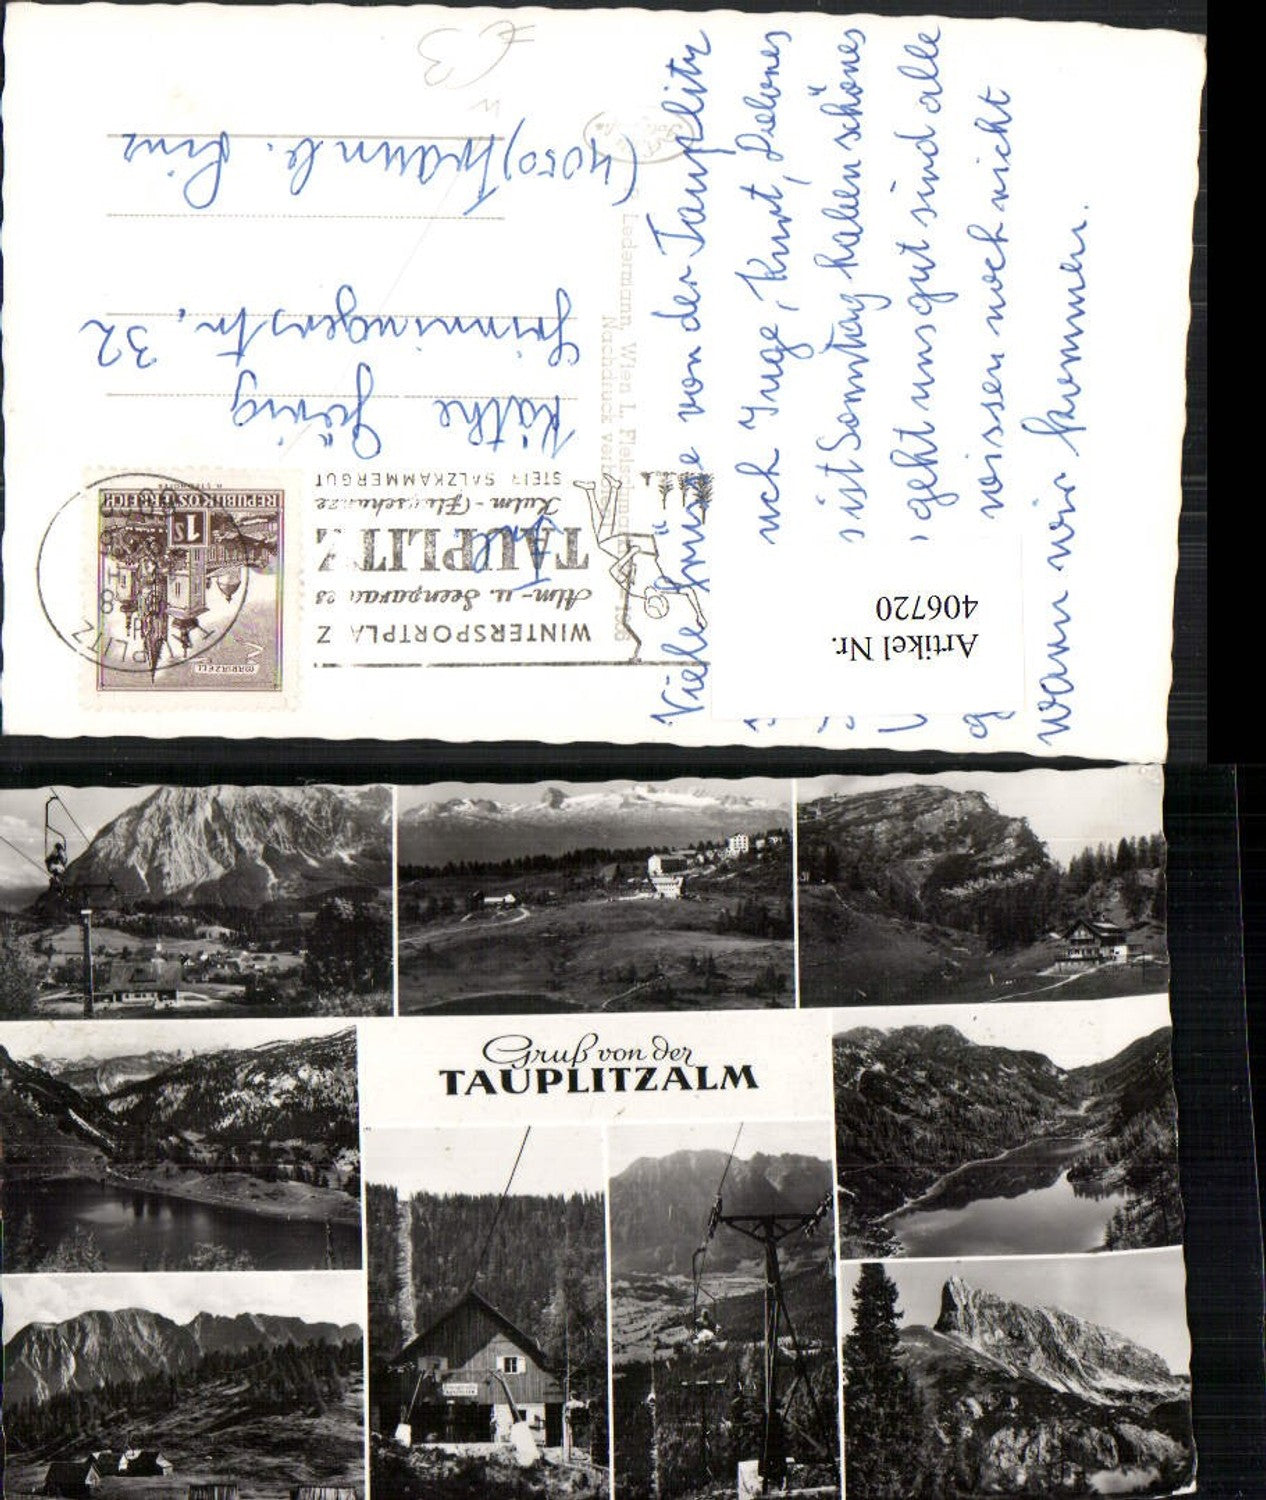 € 3
Viele Grüsse von der Tauplitz
uch Inge, Kurt,
ist Sonntag haben schönes
geht uns gut sind alle
wissen noch nicht
wann wir kommen.
Artikel Nr.
406720
WINTERSPORTPLATZ
Alm- u. Seenparadies
TAUPLITZ
Kulm-Flugschanze
STEIR. SALZKAMMERGUT
TAUPLITZ
MARIAZELL
1S
REPUBLIK ÖSTERREICH
Frl.
Käthe
Grimmingerstr. 32
(4050) Traun b. Linz
Ledermann, Wien I., Fleischmarkt
Nachdruck verboten
Gruß von der
TAUPLITZALM